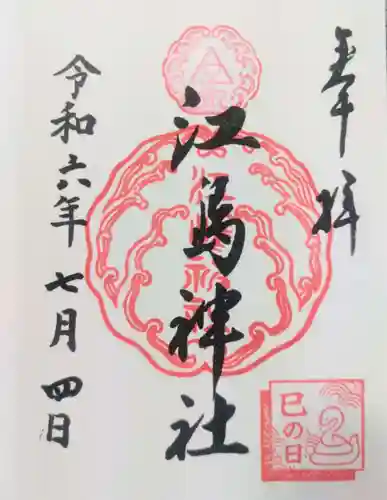 奉拝
江島神社
令和六年七月四日
巳の日